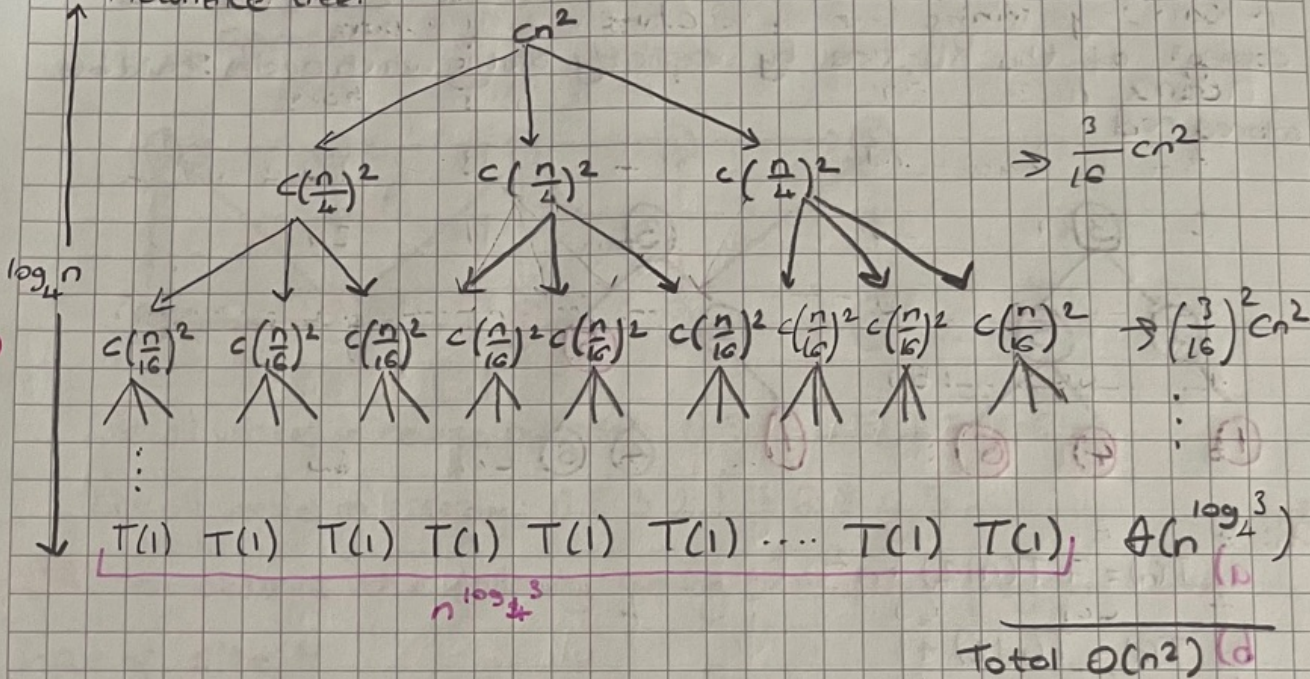 Recurrence tree:
cn²
c(n/4)² c(n/4)² c(n/4)² ⇒ 3/16 cn²
log₄n
c(n/16)² c(n/16)² c(n/16)² c(n/16)² c(n/16)² c(n/16)² c(n/16)² c(n/16)² c(n/16)² → (3/16)² cn²
T(1) T(1) T(1) T(1) T(1) T(1) .... T(1) T(1) θ(n^log₄3)
n^log₄3
Total O(n²)